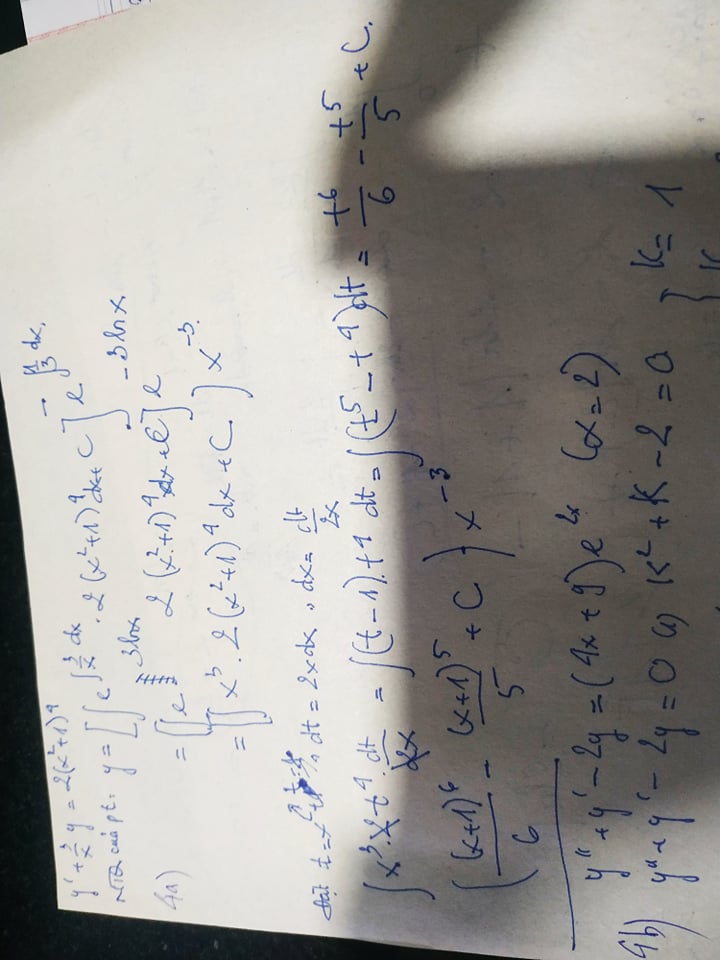 y' + 3/x y = 2(x²+1)⁴
NTQ của pt: y = [∫ e^(∫ 3/x dx) . 2 (x²+1)⁴ dx + C] e^(-∫ 1/3 dx).
4a) = [∫ e^(3lnx) 2 (x²+1)⁴ dx + C] e^(-3lnx)
= [∫ x³ . 2 (x²+1)⁴ dx + C] x⁻³.
Đặt t = x²+1, dt = 2x dx, dx = dt/2x
∫ x³ . 2 t⁴ . dt/2x = ∫ (t-1) t⁴ dt = ∫ (t⁵ - t⁴) dt = t⁶/6 - t⁵/5 + C.
((x+1)⁶/6 - (x+1)⁵/5 + C) x⁻³
y'' + y' - 2y = (4x + 9) e^(2x) (α = 2)
4b) y'' + y' - 2y = 0 (1) K² + K - 2 = 0 [ K = 1
K